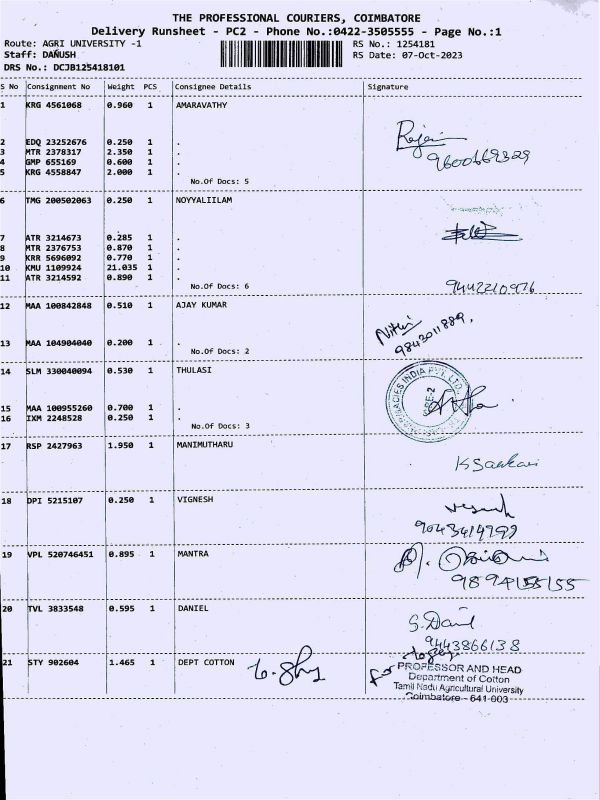 THE PROFESSIONAL COURIERS, COIMBATORE
Delivery Runsheet - PC2 - Phone No.:0422-3505555 - Page No.:1
Route: AGRI UNIVERSITY -1 RS No.: 1254181
Staff: DANUSH RS Date: 07-Oct-2023
DRS No.: DCJB125418101
S No Consignment No Weight PCS Consignee Details Signature
1 KRG 4561068 0.960 1 AMARAVATHY
2 EDQ 23252676 0.250 1 .
3 MTR 2378317 2.350 1 .
4 GMP 655169 0.600 1 .
5 KRG 4558847 2.000 1 .
9600669329
No.Of Docs: 5
6 TMG 200502063 0.250 1 NOYYALIILAM
7 ATR 3214673 0.285 1 .
8 MTR 2376753 0.870 1 .
9 KRR 5696092 0.770 1 .
10 KMU 1109924 21.035 1 .
11 ATR 3214592 0.890 1 .
No.Of Docs: 6 9442210976
12 MAA 100842848 0.510 1 AJAY KUMAR
Nithi
9843011889.
13 MAA 104904040 0.200 1 .
No.Of Docs: 2
14 SLM 330040094 0.530 1 THULASI
INDIA PVT. LTD.
15 MAA 100955260 0.700 1 .
16 IXM 2248528 0.250 1 .
No.Of Docs: 3
17 RSP 2427963 1.950 1 MANIMUTHARU
K Sankari
18 DPI 5215107 0.250 1 VIGNESH
19 VPL 520746451 0.895 1 MANTRA
20 TVL 3833548 0.595 1 DANIEL
9443866138
21 STY 902604 1.465 1 DEPT COTTON
for PROFESSOR AND HEAD
Department of Cotton
Tamil Nadu Agricultural University
Coimbatore - 641 003